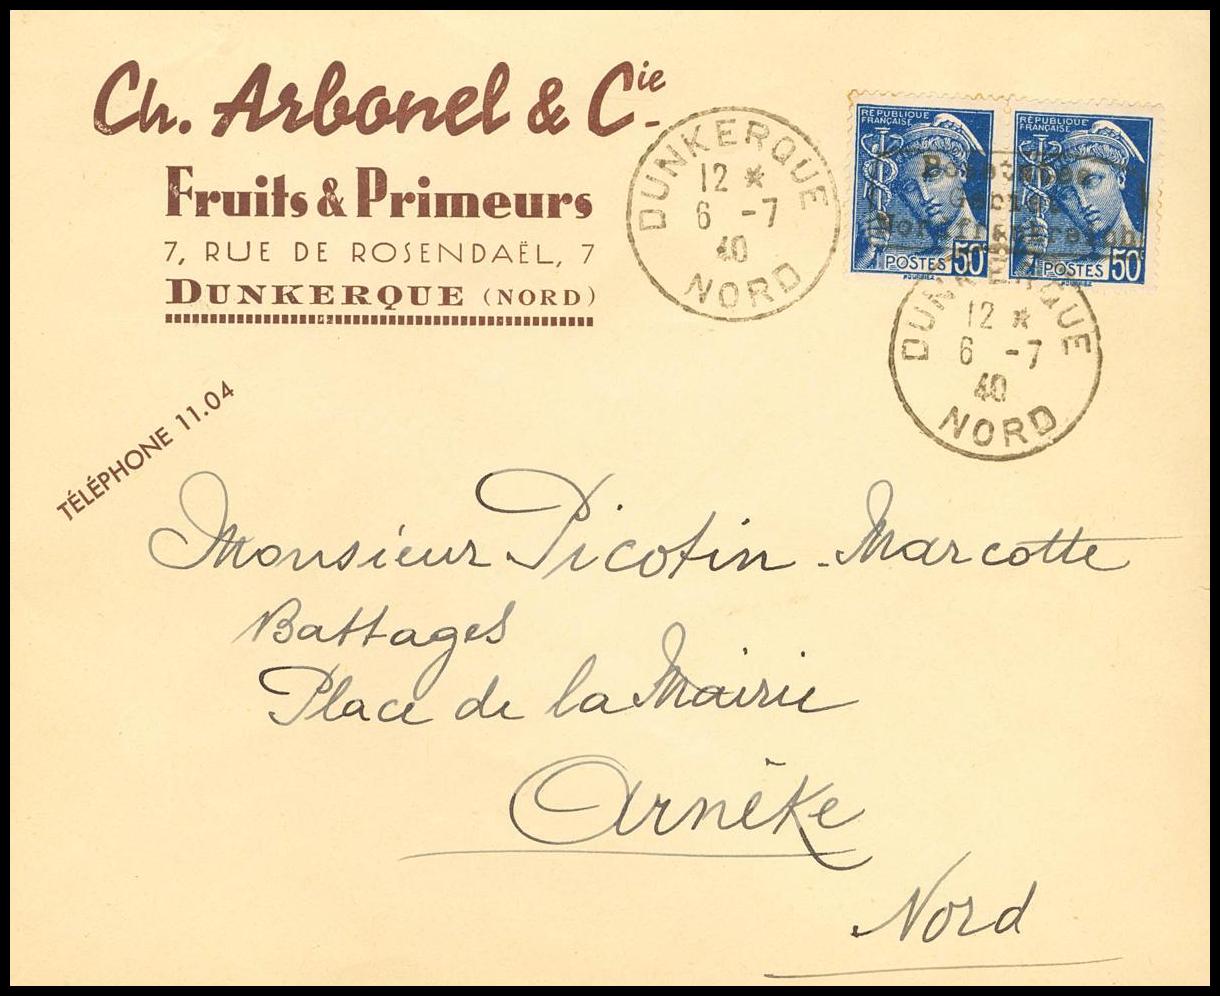 Ch. Arbonel & Cie
Fruits & Primeurs
7, RUE DE ROSENDAËL, 7
DUNKERQUE (NORD)
TÉLÉPHONE 11.04
DUNKERQUE
12 *
6 -7
40
NORD
RÉPUBLIQUE FRANÇAISE
POSTES 50
RÉPUBLIQUE FRANÇAISE
POSTES 50
DUNKERQUE
12 *
6 -7
40
NORD
Monsieur Picotin-Marcotte
Battages
Place de la Mairie
Arnêke
Nord